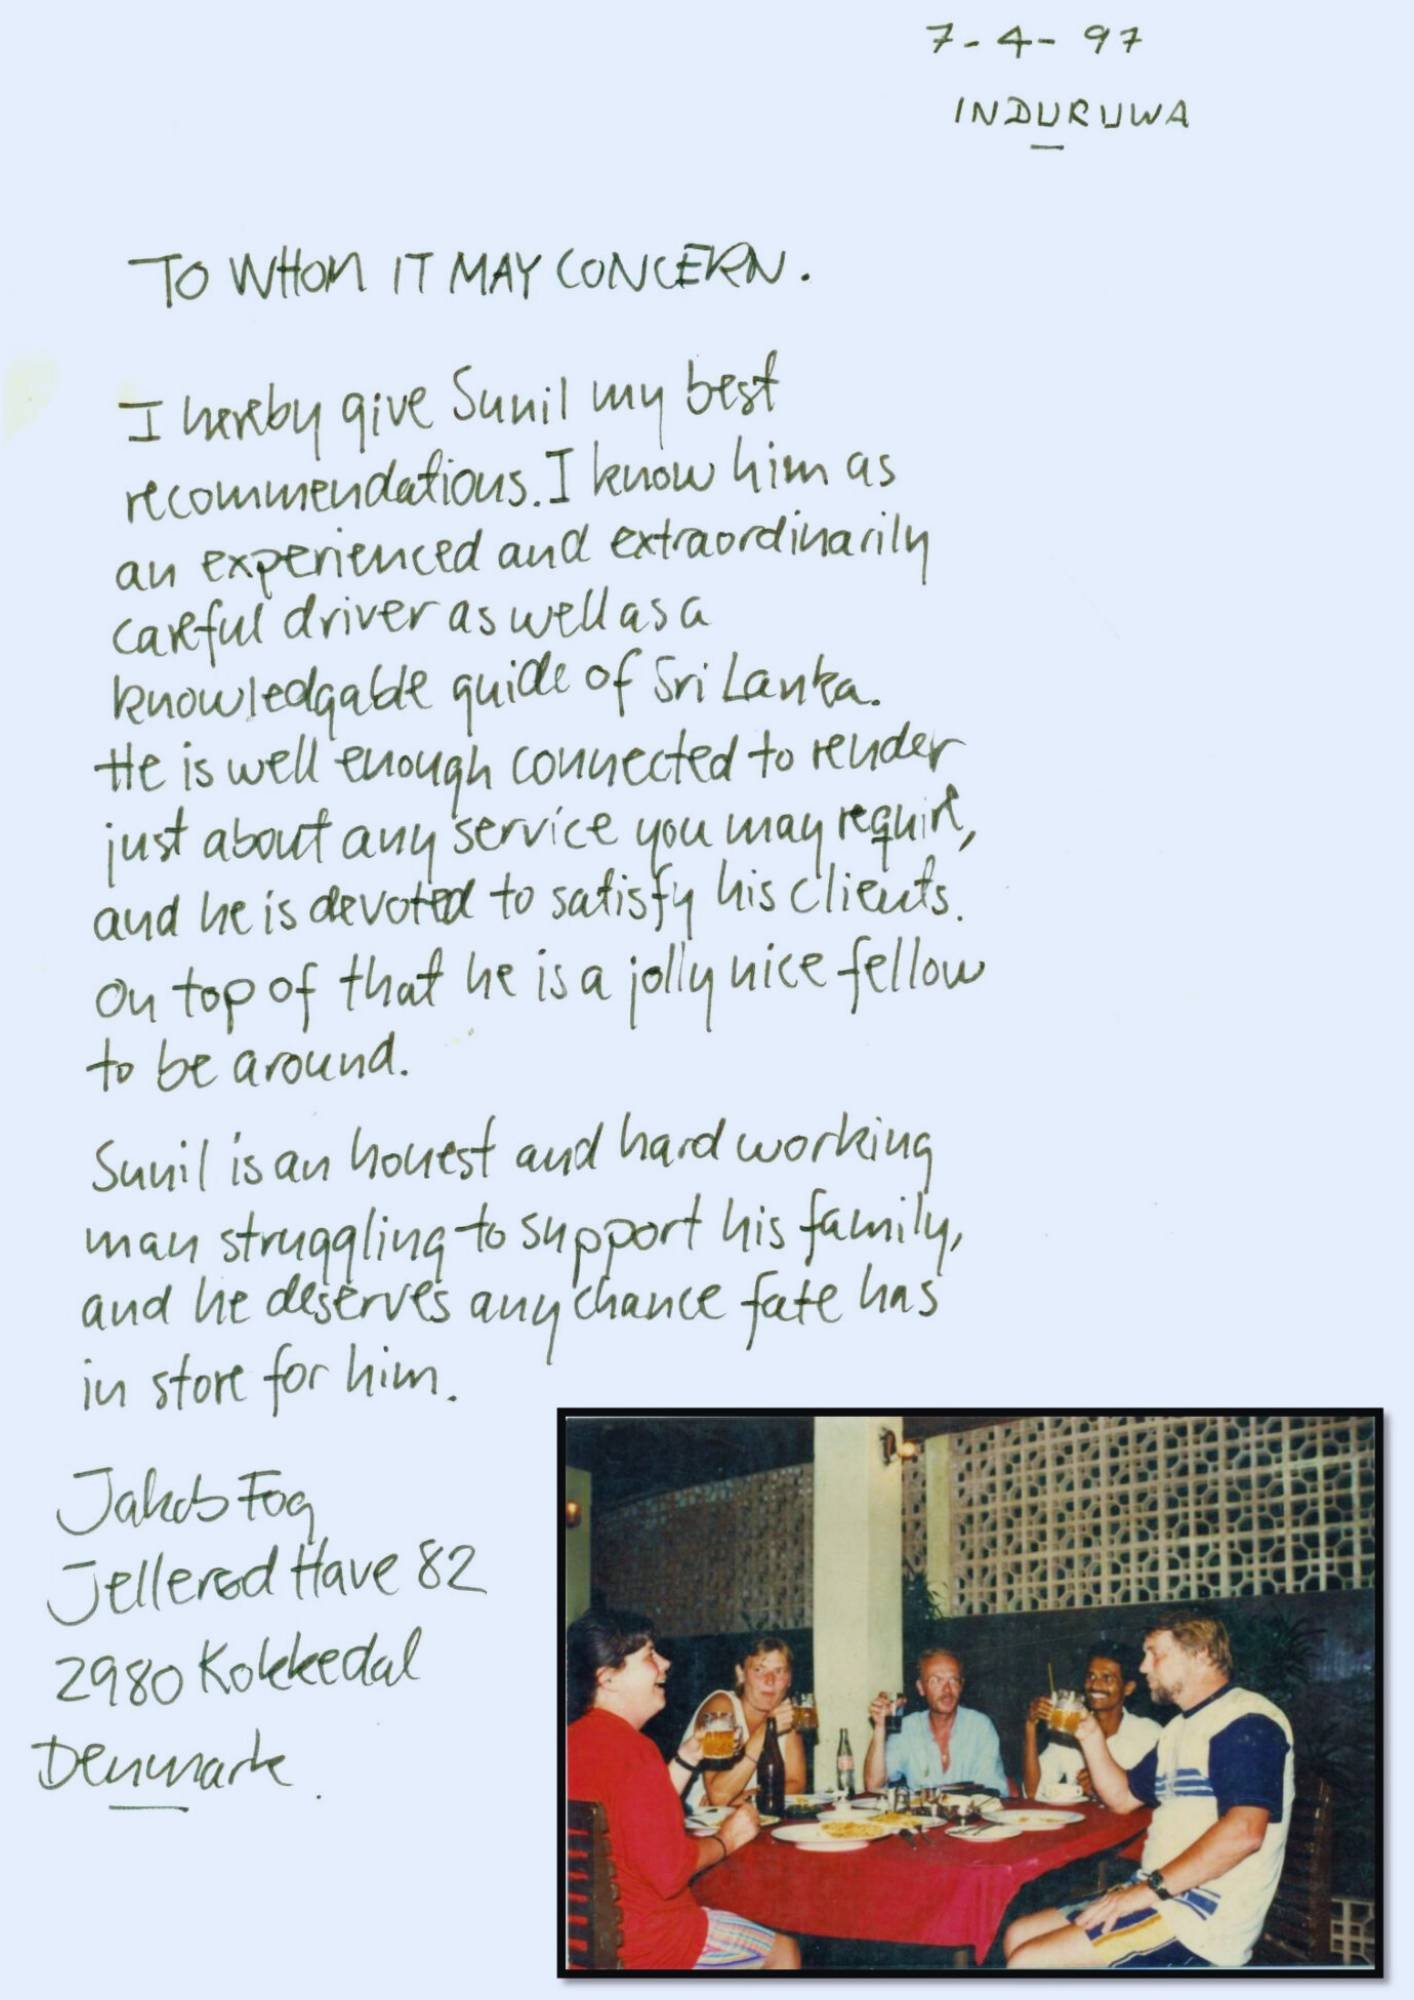 7-4-97
INDURUWA
TO WHOM IT MAY CONCERN.
I hereby give Sunil my best
recommendations. I know him as
an experienced and extraordinarily
careful driver as well as a
knowledgable guide of Sri Lanka.
He is well enough connected to render
just about any service you may require,
and he is devoted to satisfy his clients.
On top of that he is a jolly nice fellow
to be around.
Sunil is an honest and hard working
man struggling to support his family,
and he deserves any chance fate has
in store for him.
Jakob Fog
Jellerød Have 82
2980 Kokkedal
Denmark.